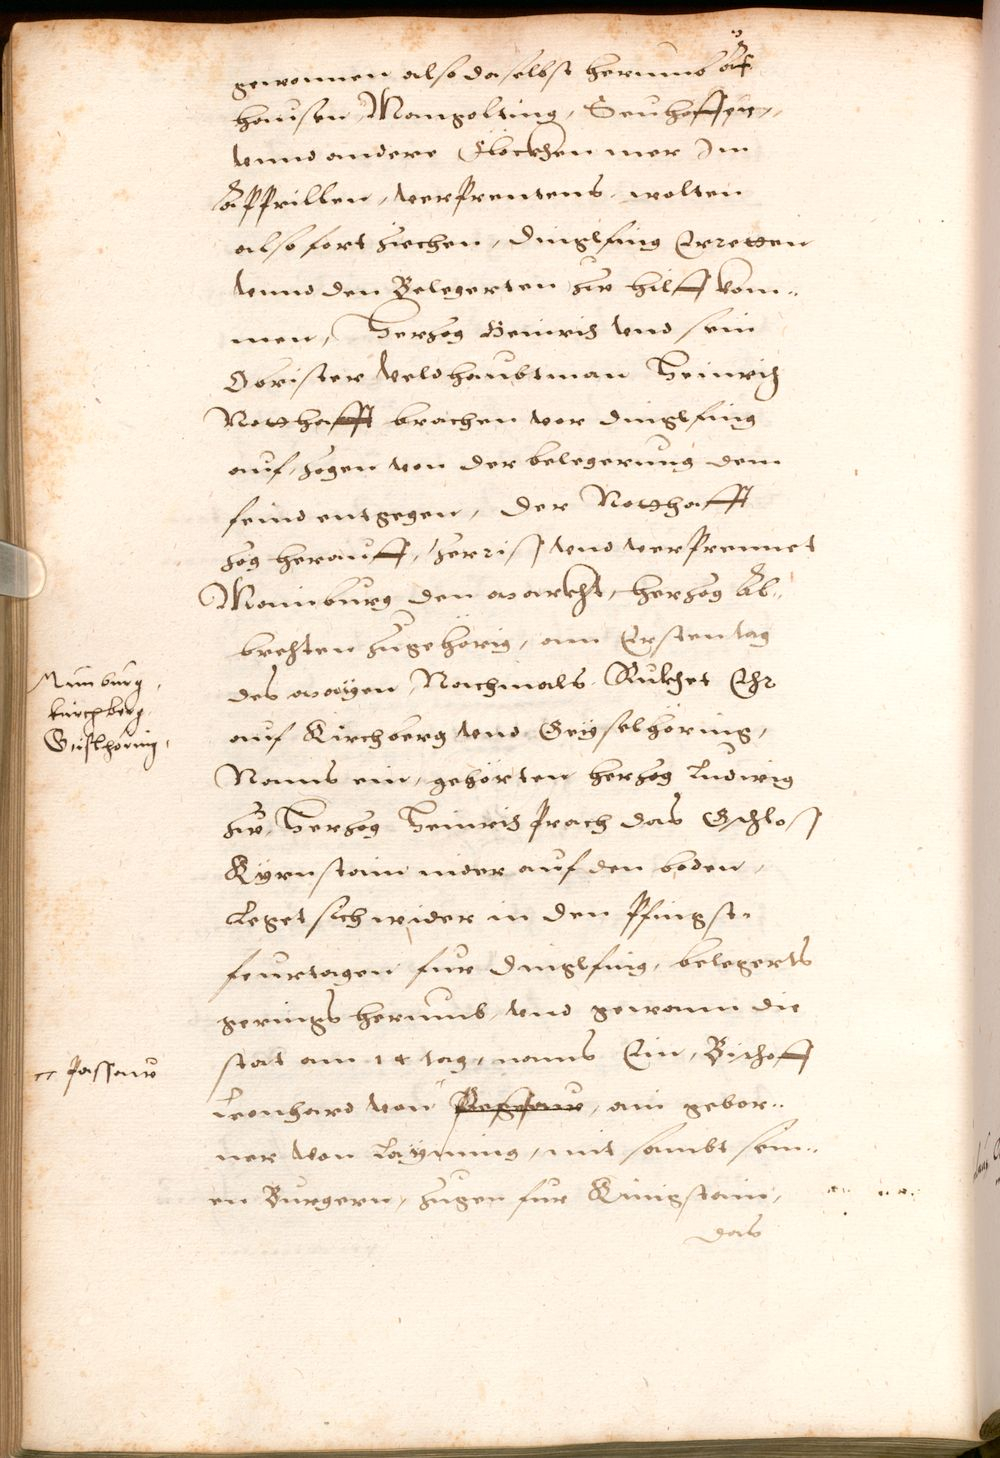 gewonnen also daselbst herumb Äf
hausen, Mangolting, Seuhoffen,
vnnd andere Flöckhen mer Im
Apprillen, verprentens, wolten
also fort ziechen, Dinglfing Erretten
vnnd den Belegerten zw hilff kom..
men, Herzog Heinrich vnd sein
Obrister Veldhaubtman Heinrich
Notthafft brachen vor Dinglfing
auf, zogen von der belegerung dem
feind entgegen, Der Notthafft
zog herauff, zerriss vnd verprennet
Mainburg den marckht, herzog Al..
brechten zugehörig, am Ersten tag
des mayen, Nachmals Rukhet Ehr
auf Kirchberg vnd Geyselhöring,
Nams ein, gehörten herzog Ludwig
zw, Herzog Heinrich prach das Gschloss
Kyrnstain nider auf den boden,
Leget sich wider in den Pfingst-
feurtagen fur Dinglfing, belegerts
gerings herumb, vnd gewann die
stat am 14 tag, nams Ein, Bischoff
Leonhard von, ain gebor..
ner von Layming, mit sambt sein..
en Burgern, zugen fur Künigstain,
das
Mainburg,
kirchberg,
Geislhöring,
Passaw